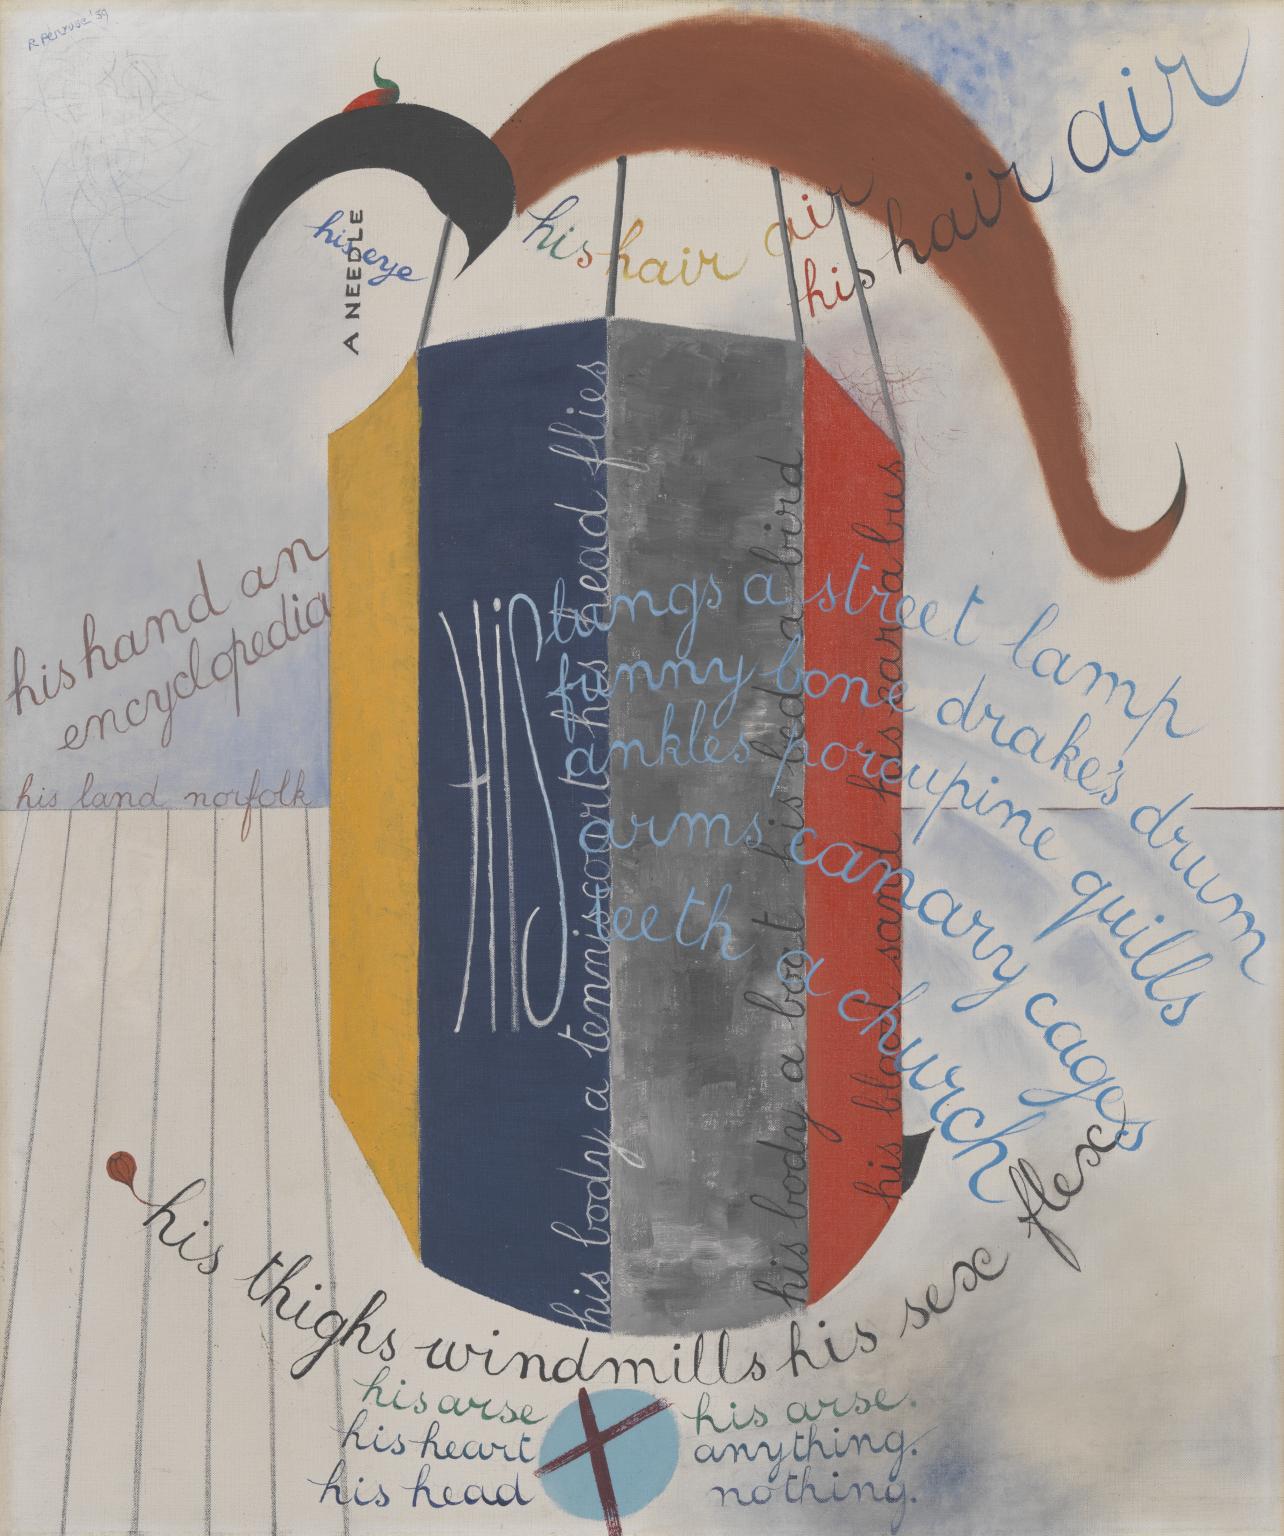 R Penrose '39
his hair air
his hair air
his eye
A NEEDLE
his hand an
encyclopedia
his land norfolk
HiS
lungs a street lamp
funny bone drake's drum
ankles porcupine quills
arms canary cages
teeth a church
his body a tenniscourt his head flies
his body a boat his bed a bird
his blood sand his ear a bus
his thighs windmills his sex flex
his arse his arse.
his heart anything.
his head nothing.